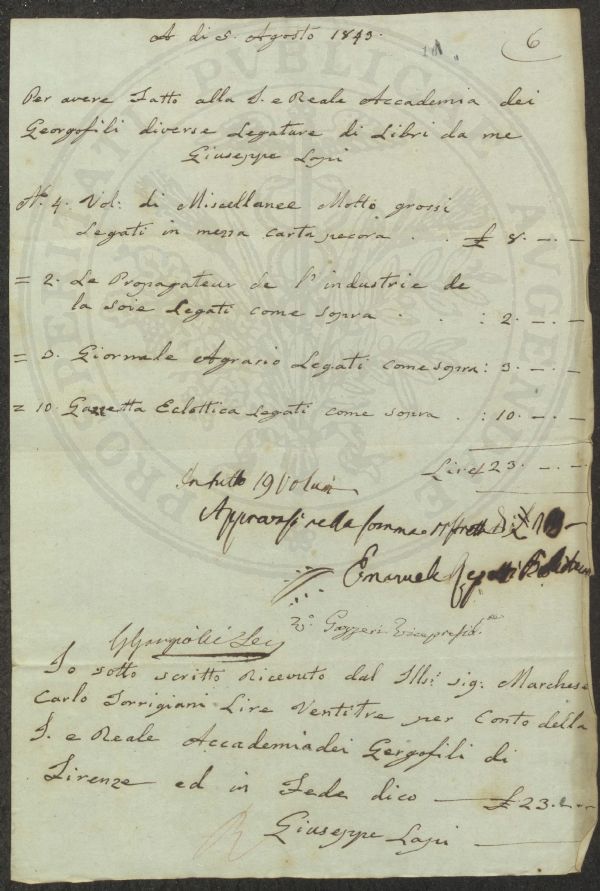 A di 5. Agosto 1843.
6
Per avere Fatto alla I. e Reale Accademia dei
Georgofili diverse Legature di Libri da me
Giuseppe Lapi
N. 4. Vol: di Miscellanee Molto grossi
Legati in mezza carta pecora . . £ 8. — . —
= 2. Le Propagateur de l'industrie de
la soie Legati come sopra . . : 2. — . —
= 3. Giornale Agrario Legati come sopra : 3. — . —
= 10. Gazzetta Eclettica Legati come sopra . : 10. — . —
Lire 23. — . —
In tutto 19 Volumi
Approvasi nella somma
Emanuele Repetti
Gazzeri Vicepresid.
Io sotto scritto Ricevuto dal Ill: sig: Marchese
Carlo Torrigiani Lire Ventitre per Conto della
I. e Reale Accademia dei Gergofili di
Firenze ed in Fede dico — £ 23. — . —
Giuseppe Lapi
PRO PUBLICAE AUGENDAE